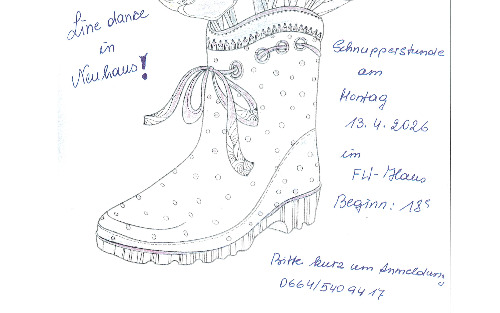 Line dance
in
Neuhaus!
Schnupperstunde
am
Montag
13.4.2026
im
FW-Haus
Beginn: 18⁰⁰
Bitte kurz um Anmeldung
0664/5409417